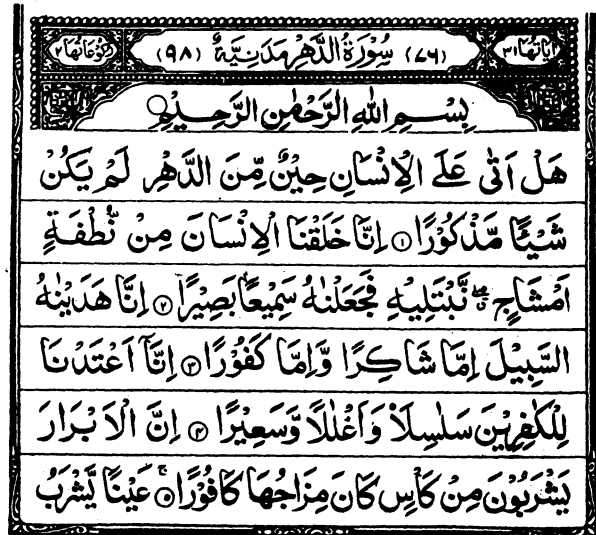 اٰیَاتُهَا ٣١ (٧٦) سُوْرَةُ الدَّهْرِ مَدَنِیَّةٌ (٩٨) رُكُوْعَاتُهَا ٢
بِسْمِ اللّٰهِ الرَّحْمٰنِ الرَّحِیْمِ
هَلْ اَتٰی عَلَی الْاِنْسَانِ حِیْنٌ مِّنَ الدَّهْرِ لَمْ یَكُنْ
شَیْـًٔا مَّذْكُوْرًا ۝١ اِنَّا خَلَقْنَا الْاِنْسَانَ مِنْ نُّطْفَةٍ
اَمْشَاجٍ ۖۗ نَّبْتَلِیْهِ فَجَعَلْنٰهُ سَمِیْعًۢا بَصِیْرًا ۝٢ اِنَّا هَدَیْنٰهُ
السَّبِیْلَ اِمَّا شَاكِرًا وَّاِمَّا كَفُوْرًا ۝٣ اِنَّاۤ اَعْتَدْنَا
لِلْكٰفِرِیْنَ سَلٰسِلَا۠ وَاَغْلٰلًا وَّسَعِیْرًا ۝٤ اِنَّ الْاَبْرَارَ
یَشْرَبُوْنَ مِنْ كَاْسٍ كَانَ مِزَاجُهَا كَافُوْرًا ۝٥ۚ عَیْنًا یَّشْرَبُ